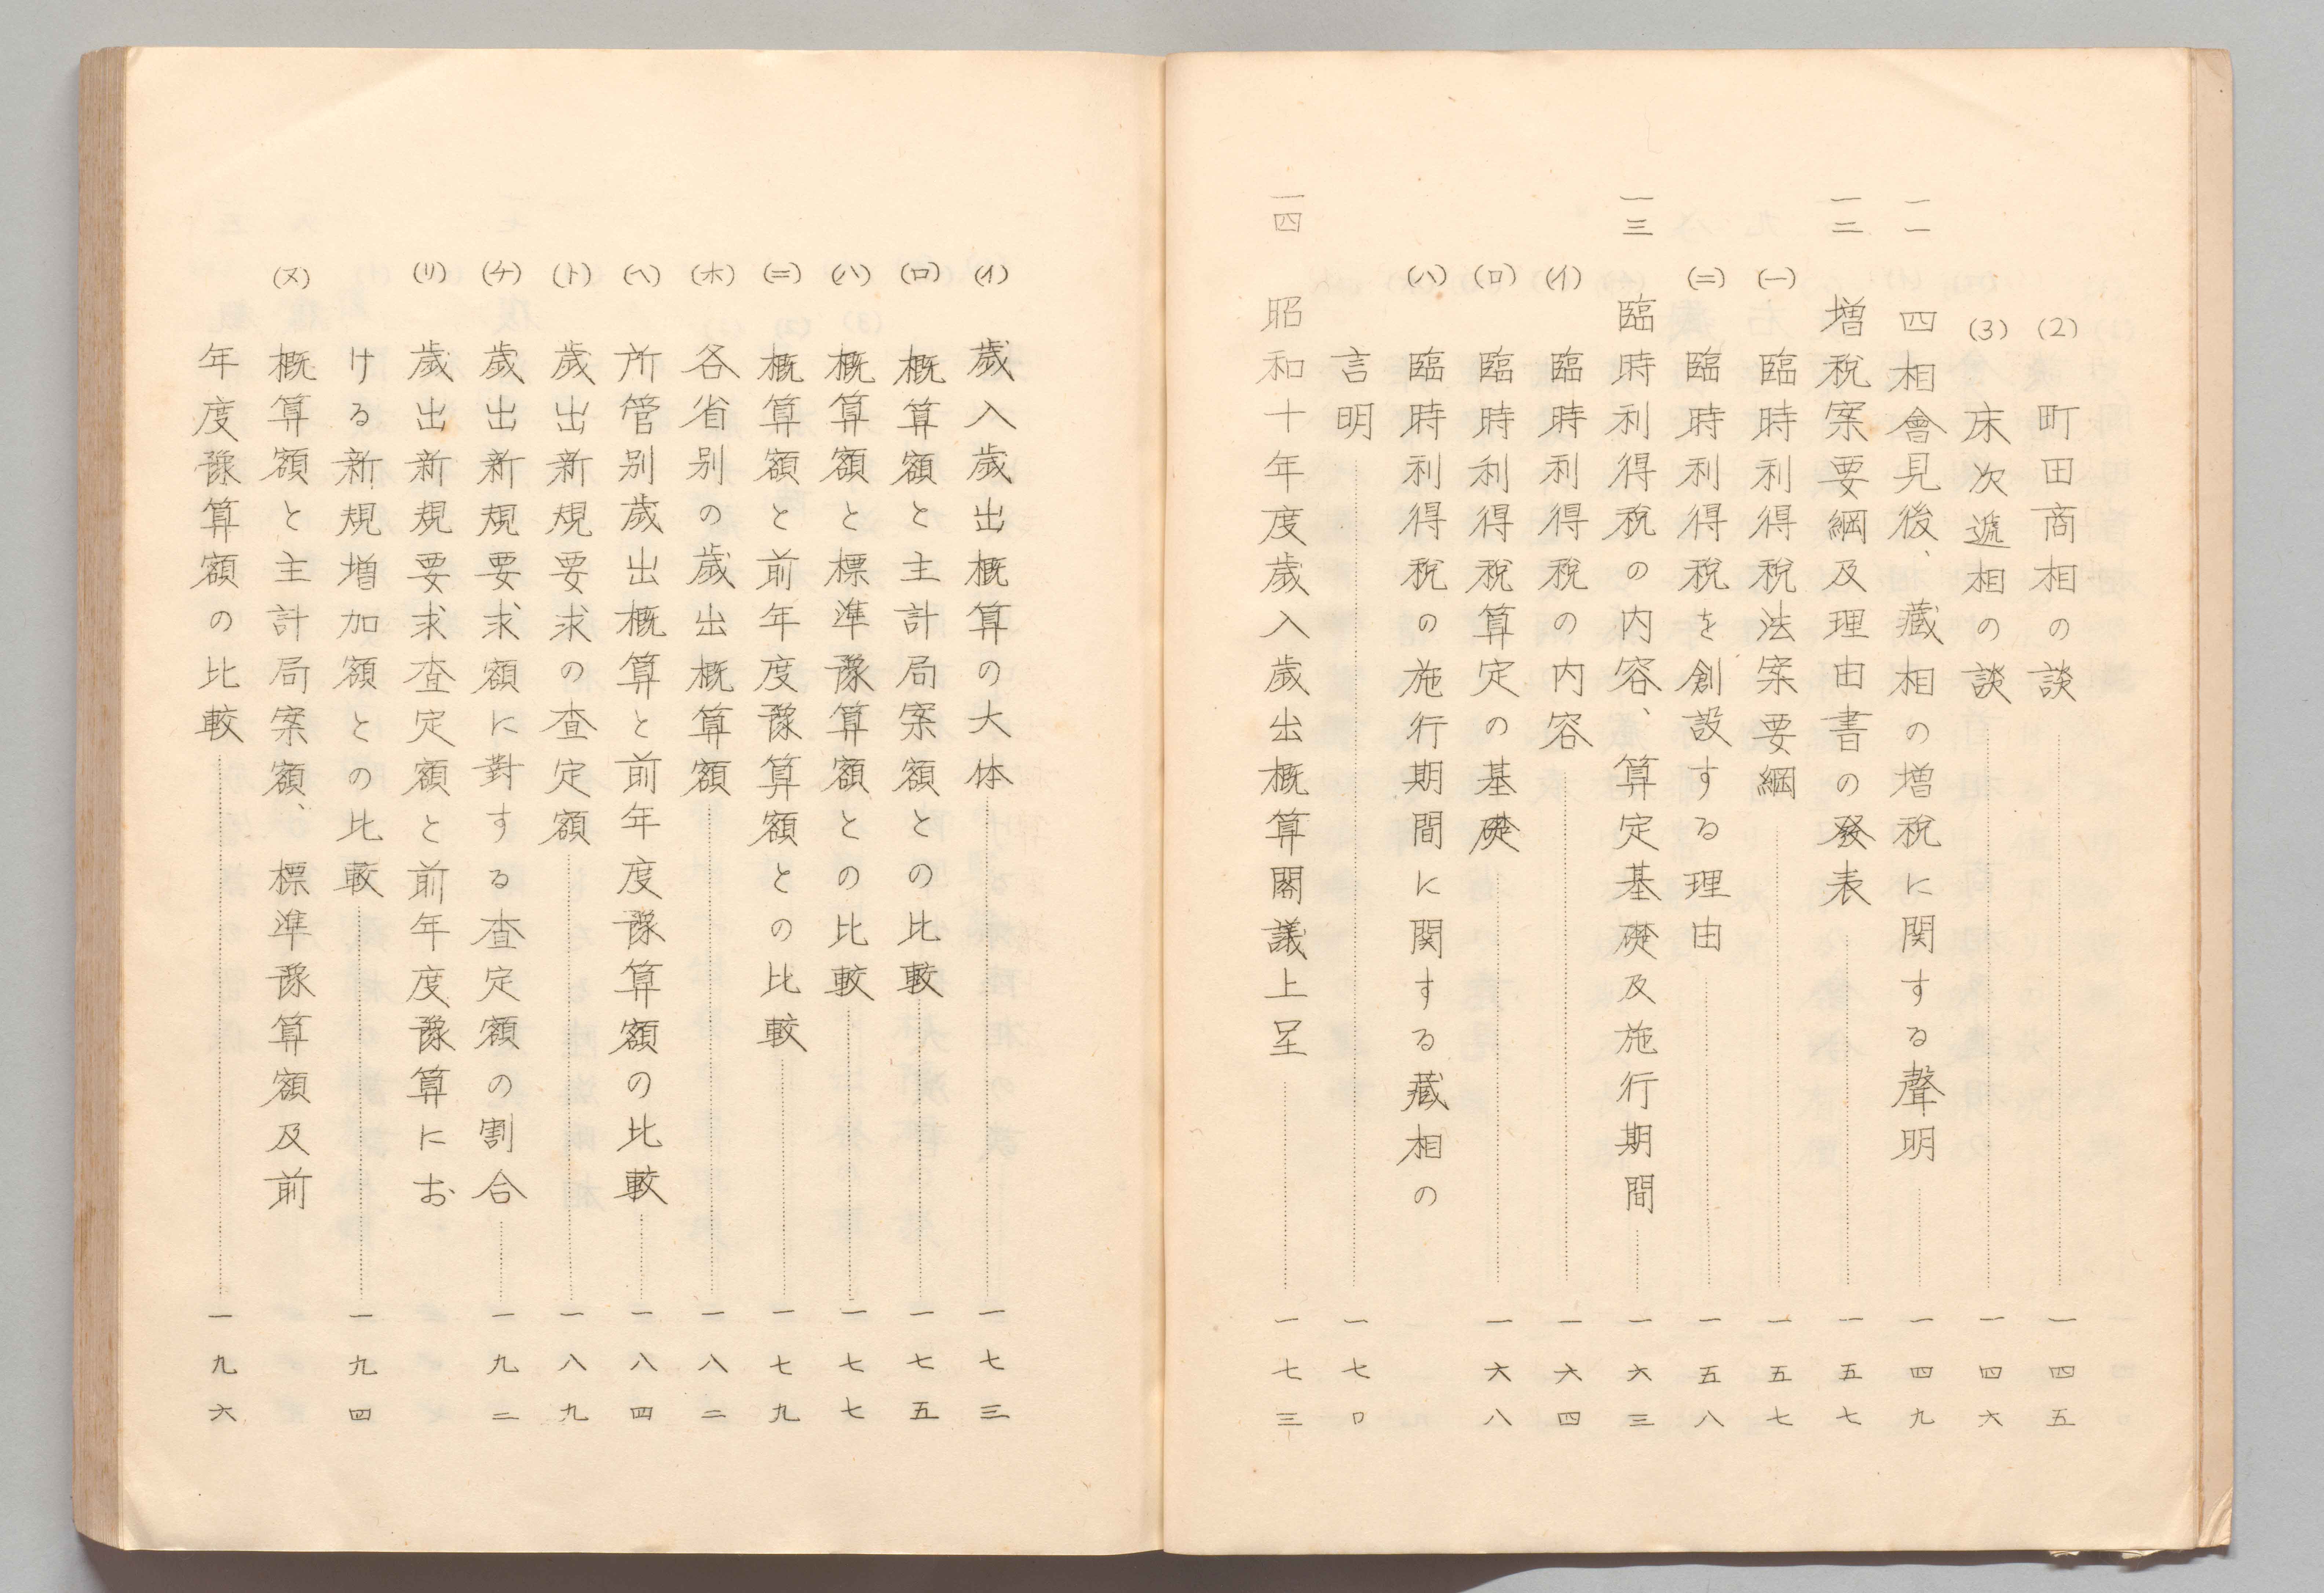 (2) 町田商相の談 一四五
(3) 床次遞相の談 一四六
一一 四相會見後、藏相の増税に関する聲明 一四九
一二 増税案要綱及理由書の發表 一五七
(一) 臨時利得税法案要綱 一五七
(二) 臨時利得税を創設する理由 一五八
一三 臨時利得税の内容、算定基礎及施行期間 一六三
(イ) 臨時利得税の内容 一六四
(ロ) 臨時利得税算定の基礎 一六八
(ハ) 臨時利得税の施行期間に関する藏相の
言明 一七〇
一四 昭和十年度歳入歳出概算閣議上呈 一七三
(イ) 歳入歳出概算の大体 一七三
(ロ) 概算額と主計局案額との比較 一七五
(ハ) 概算額と標準豫算額との比較 一七七
(ニ) 概算額と前年度豫算額との比較 一七九
(ホ) 各省別の歳出概算額 一八二
(ヘ) 所管別歳出概算と前年度豫算額の比較 一八四
(ト) 歳出新規要求の査定額 一八九
(チ) 歳出新規要求額に對する査定額の割合 一九二
(リ) 歳出新規要求査定額と前年度豫算にお
ける新規増加額との比較 一九四
(ヌ) 概算額と主計局案額、標準豫算額及前
年度豫算額の比較 一九六